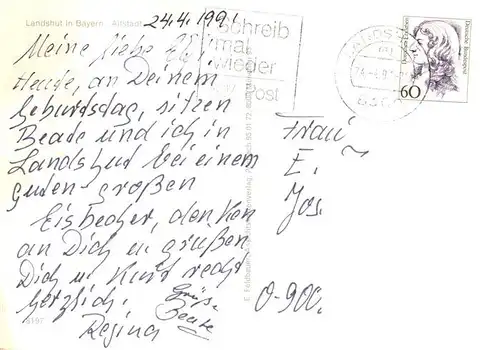 Landshut in Bayern - Altstadt
24.4.1991
Schreib
mal
wieder
Post
Deutsche Bundespost
60
Meine liebe
Heute, an Deinem
Geburtsdag, sitzen
Beate und ich in
Landshut bei einem
guten großen
Eisbecher, denken
an Dich u. grüßen
Dich u. Kurt recht
herzlich.
Regina
Grüße
Beate
Frau
E.
Jos.
0-900.
8197